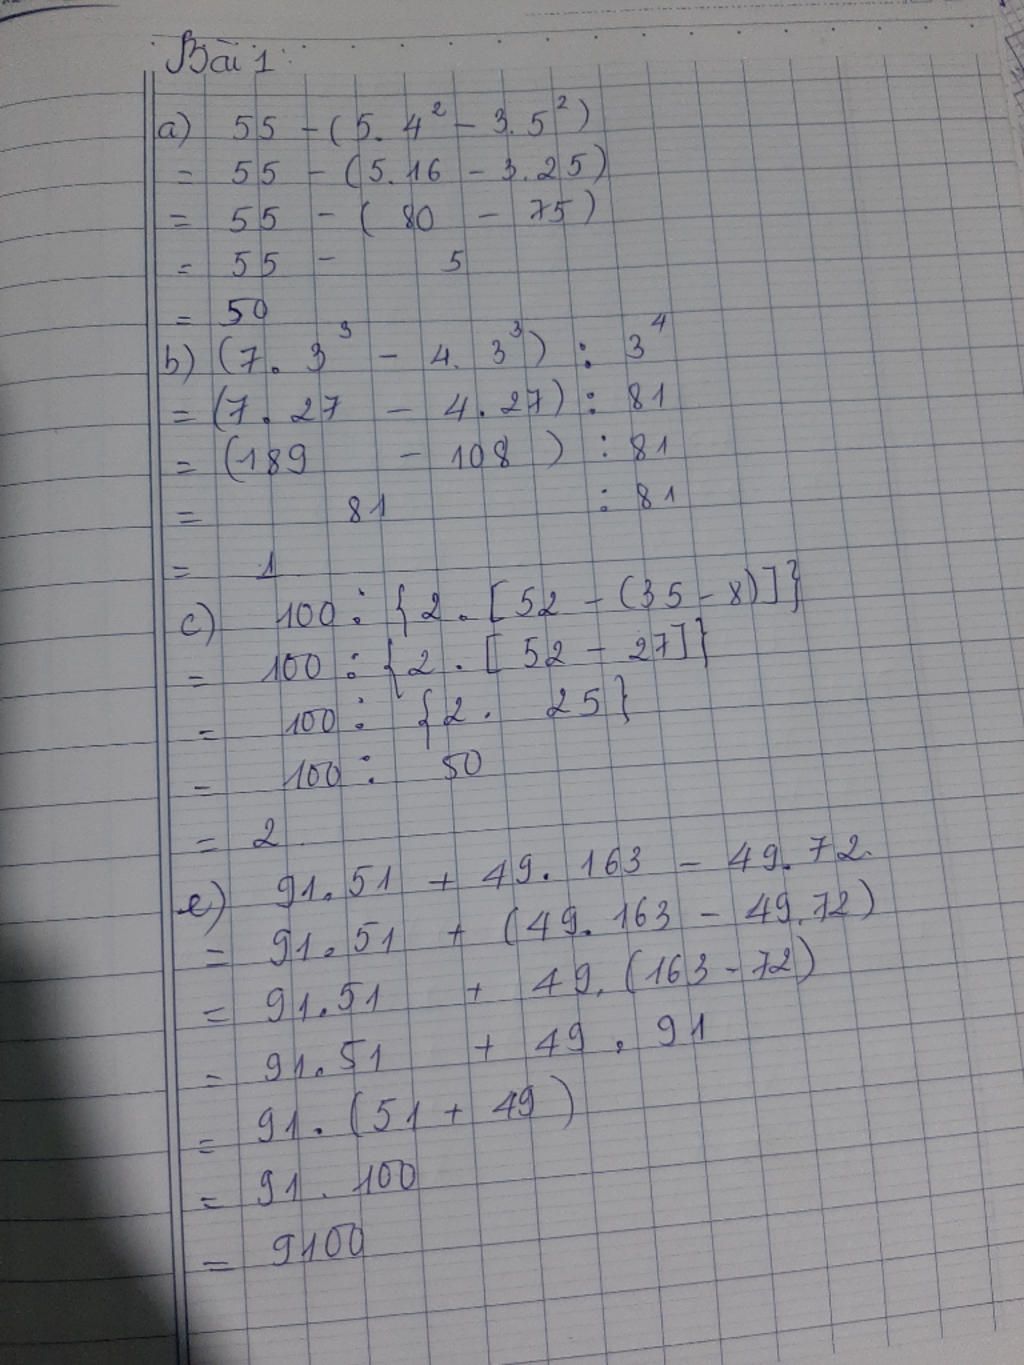 Bài 1:
a) 55 - (5. 4² - 3. 5²)
= 55 - (5.16 - 3.25)
= 55 - ( 80 - 75)
= 55 - 5
= 50
b) (7. 3³ - 4. 3³) : 3⁴
= (7. 27 - 4. 27) : 81
= (189 - 108 ) : 81
= 81 : 81
= 1
c) 100 : {2. [52 - (35 - 8)]}
= 100 : {2. [ 52 - 27]}
= 100 : {2. 25}
= 100 : 50
= 2
e) 91.51 + 49. 163 - 49. 72.
= 91.51 + (49. 163 - 49.72)
= 91.51 + 49. (163 - 72)
= 91.51 + 49 . 91
= 91. (51 + 49 )
= 91 . 100
= 9100